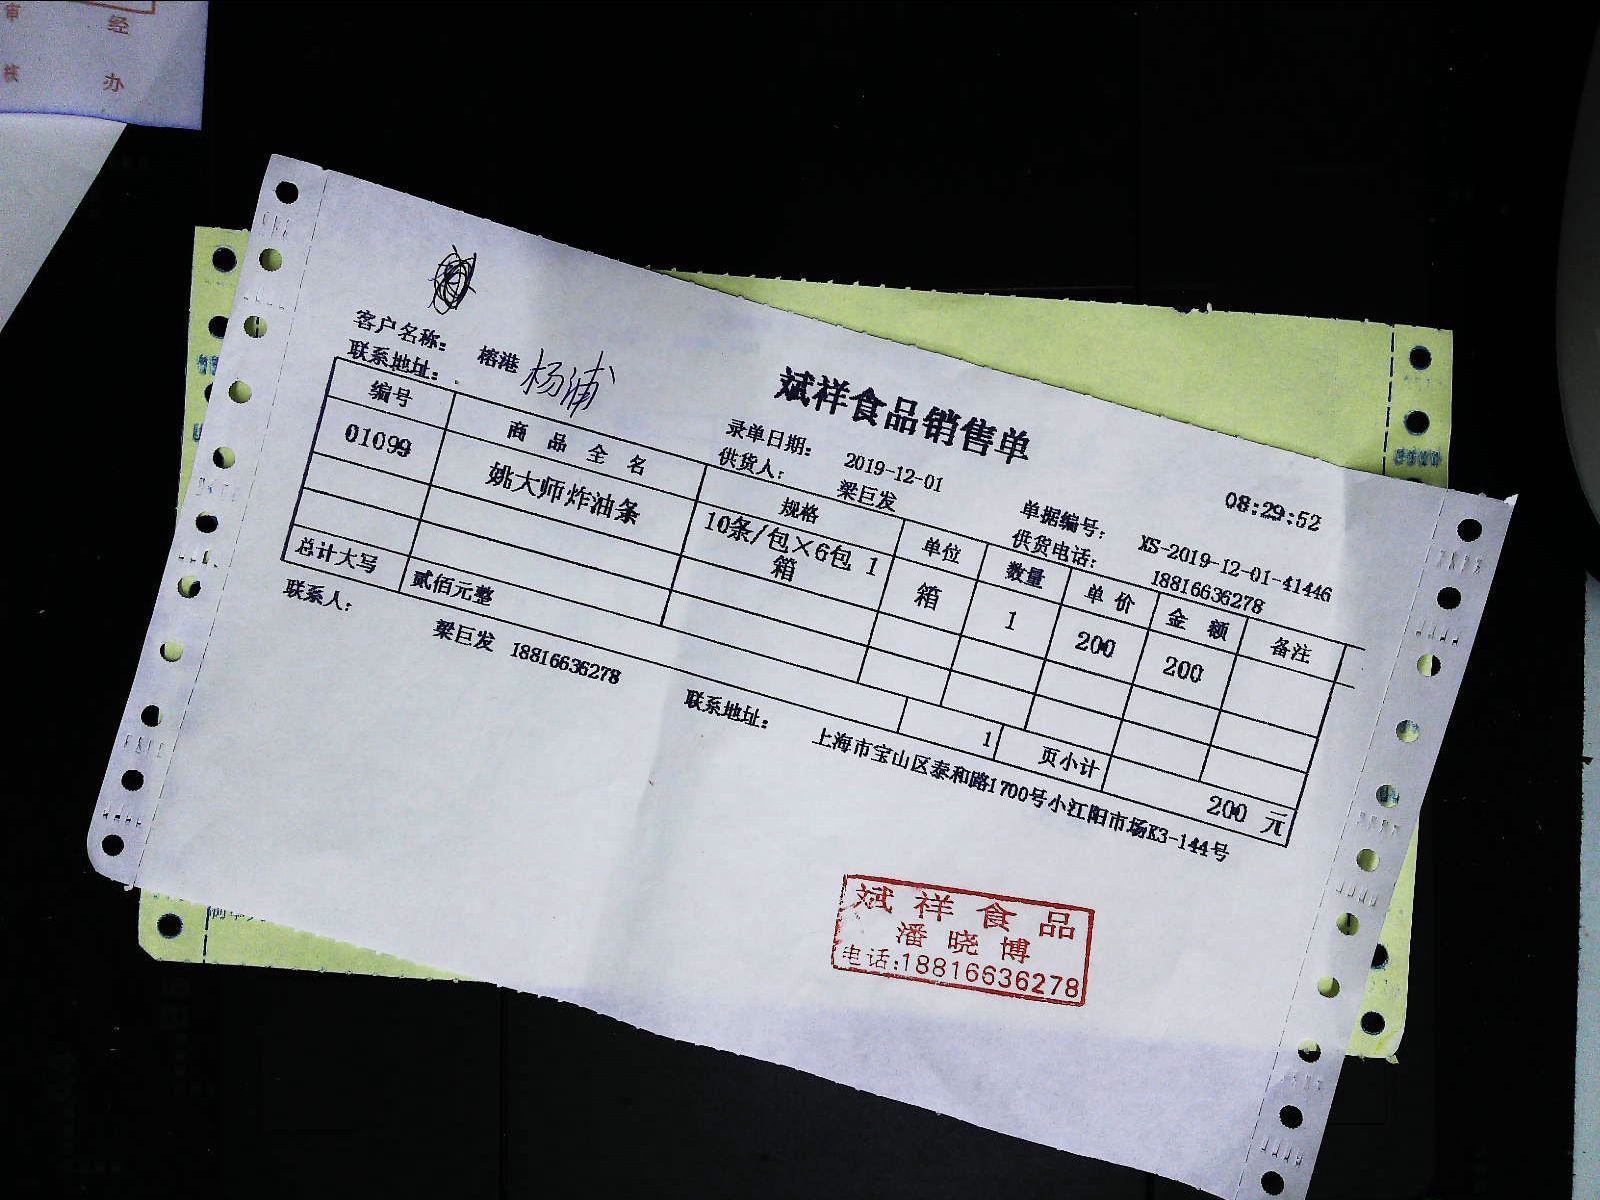 审 经
核 办
斌祥食品销售单
08:29:52
客户名称: 榕港 杨浦
录单日期: 2019-12-01
单据编号: XS-2019-12-01-41446
联系地址:
供货人: 梁巨发
供货电话: 18816636278
编号 商品全名 规格 单位 数量 单价 金额 备注
01099 姚大师炸油条 10条/包×6包 1箱 箱 1 200 200
总计大写 贰佰元整 1 页小计 200 元
联系人: 梁巨发 18816636278 联系地址: 上海市宝山区泰和路1700号小江阳市场K3-144号
斌祥食品
潘晓博
电话:18816636278